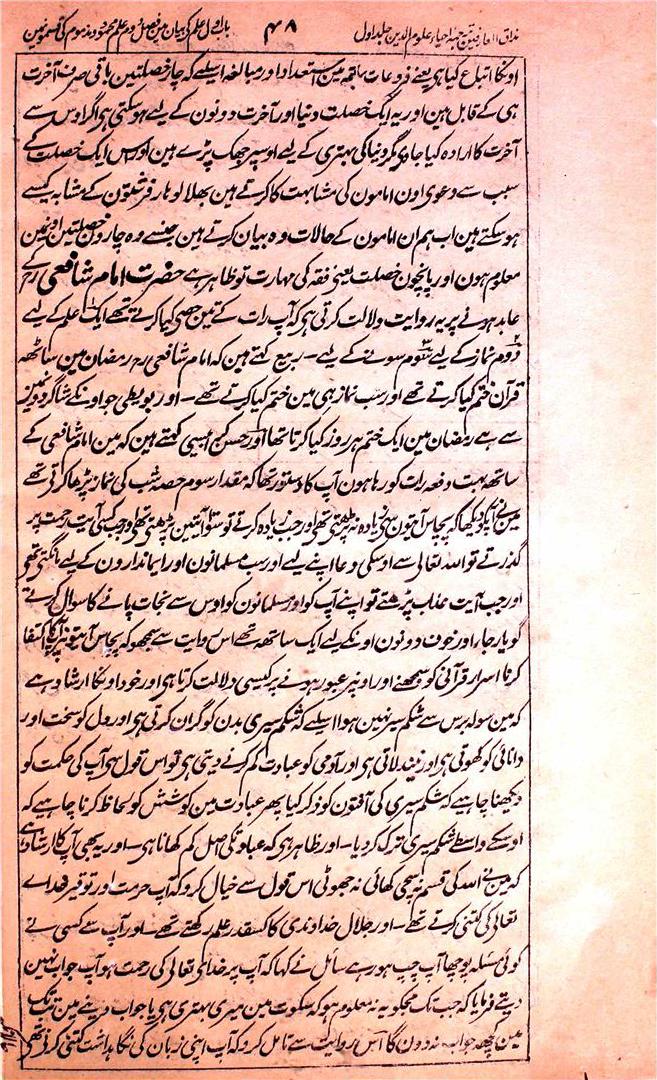 مذاق العارفین ترجمہ احیاء علوم الدین جلد اول ۴۸ باب اول علم کے بیان مین فصل دوم علم محمود و مذموم کی قسمونمین
اونکا اتباع کیا ہی یعنے فروعات فقہ مین استعداد اور مبالغہ اسلیے کہ چار خصلتین باقی صرف آخرت
ہی کے قابل ہین اور یہ ایک خصلت دنیا اور آخرت دونون کے لیے ہوسکتی ہی اگر اوس سے
آخرت کا ارادہ کیا جاوے مگر دنیا کی بہتری کے لیے اوسپر جھک پڑے ہین اور اس ایک خصلت کے
سبب سے دعوی اون امامون کی مشابہت کا کرتے ہین بھلا لوہار فرشتون کے مشابہ کیسے
ہوسکتے ہین اب ہم ان امامون کے حالات وہ بیان کرتے ہین جنسے وہ چارون خصلتین اونمین
معلوم ہون اور پانچون خصلت یعنی فقہ کی مہارت تو ظاہر ہے حضرت امام شافعی رح کے
عابد ہونے پر یہ روایت دلالت کرتی ہی کہ آپ رات کے تین حصے کیا کرتے تھے ایک علم کے لیے
دوم نماز کے لیے سوم سونے کے لیے۔ ربیع کہتے ہین کہ امام شافعی رح رمضان مین ساٹھ
قرآن ختم کیا کرتے تھے اور سب نماز ہی مین ختم کیا کرتے تھے۔ اور بویطی جو اونکے شاگردونمین
سے ہے رمضان مین ایک ختم ہر روز کیا کرتا تھا اور حسن کرابیسی کہتے ہین کہ مین امام شافعی کے
ساتھ بہت دفعہ رات کو رہا ہون آپ کا دستور تھا کہ مقدار سوم حصہ شب کی نماز پڑھا کرتے تھے
مین نے آپکو دیکھا کہ پچاس آیتون سے زیادہ نہ پڑھتے تھے اور جب زیادہ کرتے تو سو آیتین پڑھتے تھے اور جب کسی آیت رحمت پر
گذرتے تو اللہ تعالی سے اوسکی دعا اپنے لیے اور سب مسلمانون اور ایماندارون کے لیے مانگتے تھے
اور جب آیت عذاب پڑھتے تو اپنے آپ کو اور مسلمانون کو اوس سے نجات پانے کا سوال کرتے
گویا رجا اور خوف دونون اونکے لیے ایک ساتھ تھے اس روایت سے سمجھو کہ پچاس آیتونپر آپکا اکتفا
کرنا اسرار قرآنی کو سمجھنے اور اونپر عبور ہونے پر کیسی دلالت کرتا ہی اور خود اونکا ارشاد ہے
کہ مین سولہ برس سے شکم سیر نہین ہوا اسلیے کہ شکم سیری بدن کو گران کرتی ہی اور دل کو سخت اور
دانائی کو کھوتی ہی اور نیند لاتی ہی اور آدمی کو عبادت کم کرنے دیتی ہی تو اس قول ہی آپ کی حکمت کو
دیکھنا چاہیے کہ شکم سیری کی آفتون کو ذکر کیا پھر عبادت مین کوشش کو لحاظ کرنا چاہیے کہ
اوسکے واسطے شکم سیری ترک کردیا۔ اور ظاہر ہی کہ عبادتکی اصل کم کھانا ہی۔ اور یہ بھی آپ کا ارشاد ہے
کہ مین نے اللہ کی قسم نہ سچی کھائی نہ جھوٹی اس قول سے خیال کرو کہ آپ حرمت اور توقیر خداے
تعالی کی کتنی کرتے تھے۔ اور جلال خداوندی کا کسقدر علم رکھتے تھے۔ اور آپ سے کسی نے
کوئی مسئلہ پوچھا آپ چپ ہورہے سائل نے کہا کہ آپ پر خداے تعالی کی رحمت ہو آپ جواب نہین
دیتے فرمایا کہ جب تک مجکو یہ نہ معلوم ہو کہ سکوت مین میری بہتری ہی یا جواب دینے مین تب تک
مین کچھ جواب نہ دون گا اس روایت سے تامل کرو کہ آپ اپنی زبان کی نگاہداشت کتنی کرتے تھے